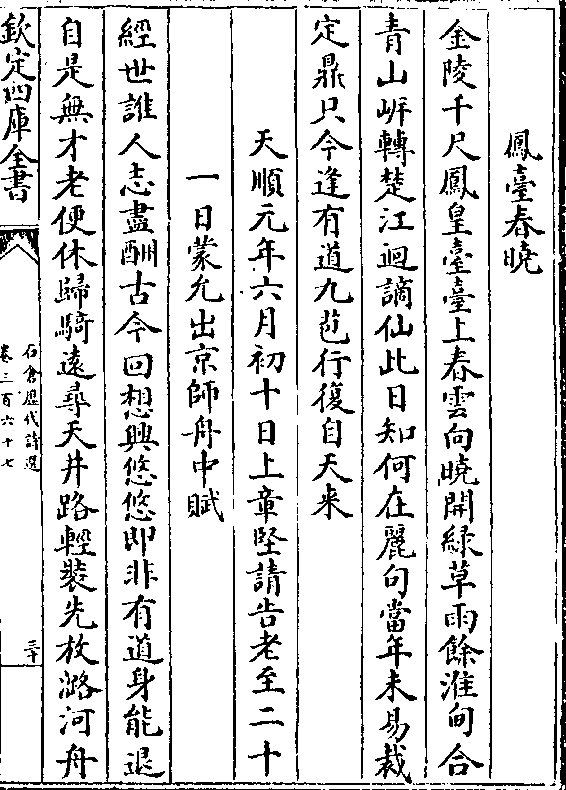 鳳臺春曉
金陵千尺鳳皇臺臺上春雲向曉開緑草雨餘淮甸合
青山㟁轉楚江迴謫仙此日知何在麗句當年未易裁
定鼎只今逢有道九苞行復自天来
天順元年六月初十日上章堅請告老至二十
一日蒙允出京師舟中賦
經世誰人志盡酬古今回想興悠悠即非有道身能退
自是無才老便休歸騎遠尋天井路輕裝先放潞河舟
欽定四庫全書
石倉歴代詩選
卷三百六十七
三十